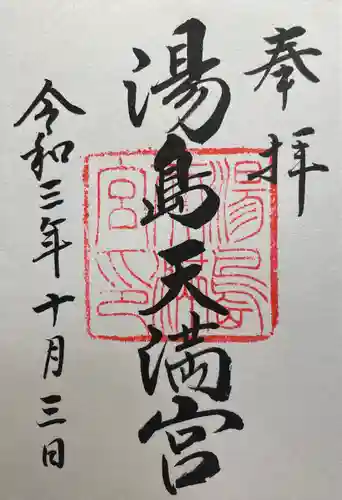 奉拝
湯島天満宮
令和三年十月三日
湯島
天満
宮印